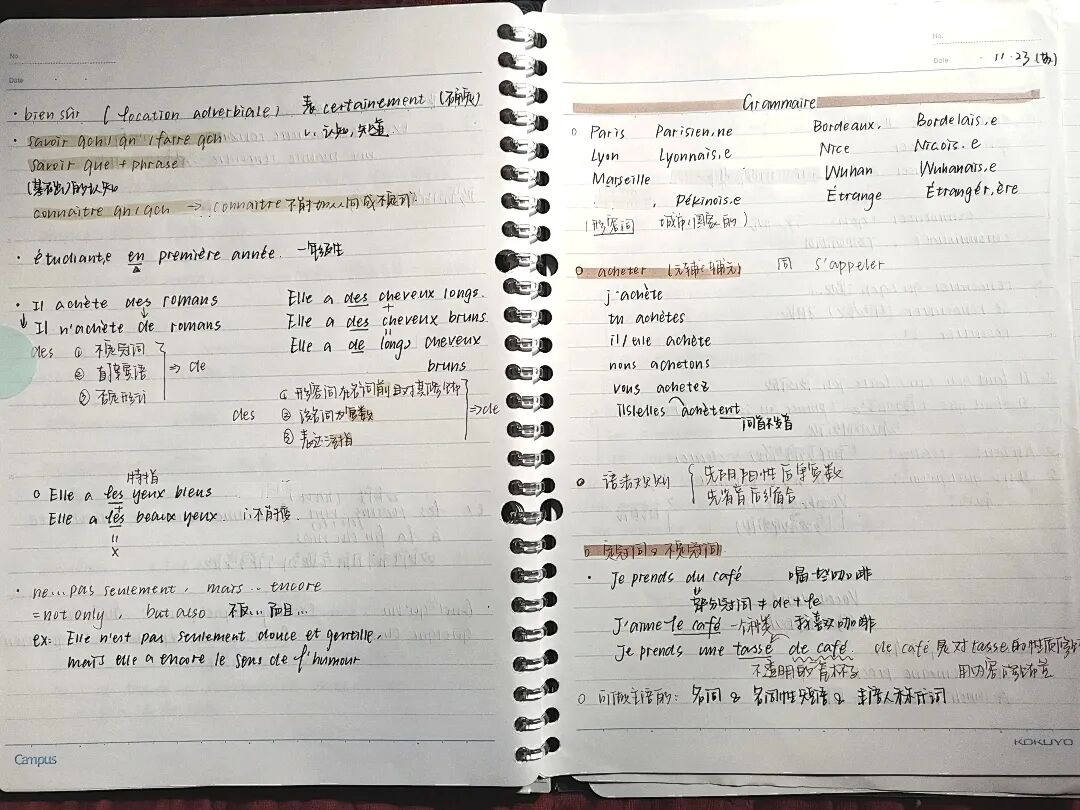 No
Date
· bien sûr (location adverbiale) 表 certainement (不确定)
· savoir qch/qn/faire qch 认知,知道
savoir que + phrase
(基础)的认知
connaître qn/qch → connaître 不能加从句或不定词
· étudiant,e en première année. 一年级生
· Il achète des romans
↓ Il n'achète de romans
des ① 不定冠词
② 直接宾语
③ 否定形式
⇒ de
Elle a des cheveux longs.
Elle a des cheveux bruns.
Elle a de longs cheveux
bruns
des ① 形容词在名词前且对其修饰
② 该名词为复数
③ 表达泛指
⇒ de
特指
○ Elle a les yeux bleus
Elle a les beaux yeux ∴不能变.
x
· ne...pas seulement, mais .. encore
= not only, but also 不仅... 而且...
ex: Elle n'est pas seulement douce et gentille,
mais elle a encore le sens de l'humour
Campus
No.
Date · 11·23
Grammaire
○ Paris Parisien,ne Bordeaux. Bordelais.e
Lyon Lyonnais.e Nice Niçois.e
Marseille Wuhan Wuhanais.e
, Pékinois.e Étrange Étrangér,ère
(形容词 城市(国家的)
○ acheter (元辅e辅元) 同 s'appeler
j'achète
tu achètes
il/elle achète
nous achetons
vous achetez
ils/elles achètent
词首不发音
· 语法规则 { 先阴阳性后单复数
先省音后缩合
○ 定冠词 & 不定冠词
· Je prends du café 喝一些咖啡
部分冠词 ≠ de + le
J'aime le café 一个种类 我喜欢咖啡
Je prends une tasse de café. de café 是对 tasse 的性质
不透明的有杯子
○ 可做主语的: 名词 & 名词性短语 & 主语人称代词
KOKUYO